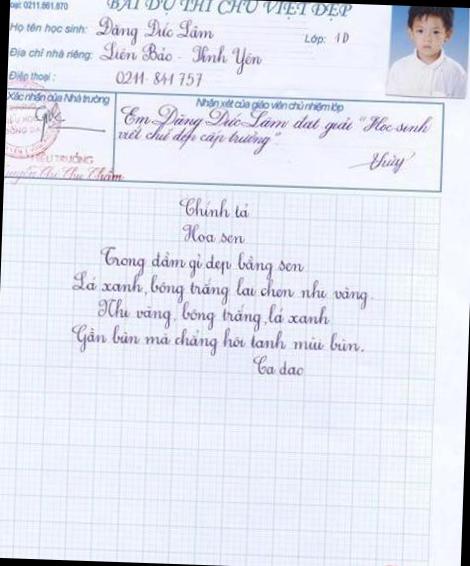 oại: 0211.861.870
BÀI DỰ THI CHỮ VIỆT ĐẸP
Họ tên học sinh: Đặng Đức Lâm Lớp: 1D
Địa chỉ nhà riêng: Liên Bảo - Vĩnh Yên
Điện thoại: 0211.841757
Xác nhận của Nhà trường
Nhận xét của giáo viên chủ nhiệm lớp
Em Đặng Đức Lâm đạt giải "Học sinh
viết chữ đẹp cấp trường"
Thủy
HIỆU TRƯỞNG
Chính tả
Hoa sen
Trong đầm gì đẹp bằng sen
Lá xanh, bông trắng lại chen nhị vàng.
Nhị vàng, bông trắng, lá xanh
Gần bùn mà chẳng hôi tanh mùi bùn.
Ca dao